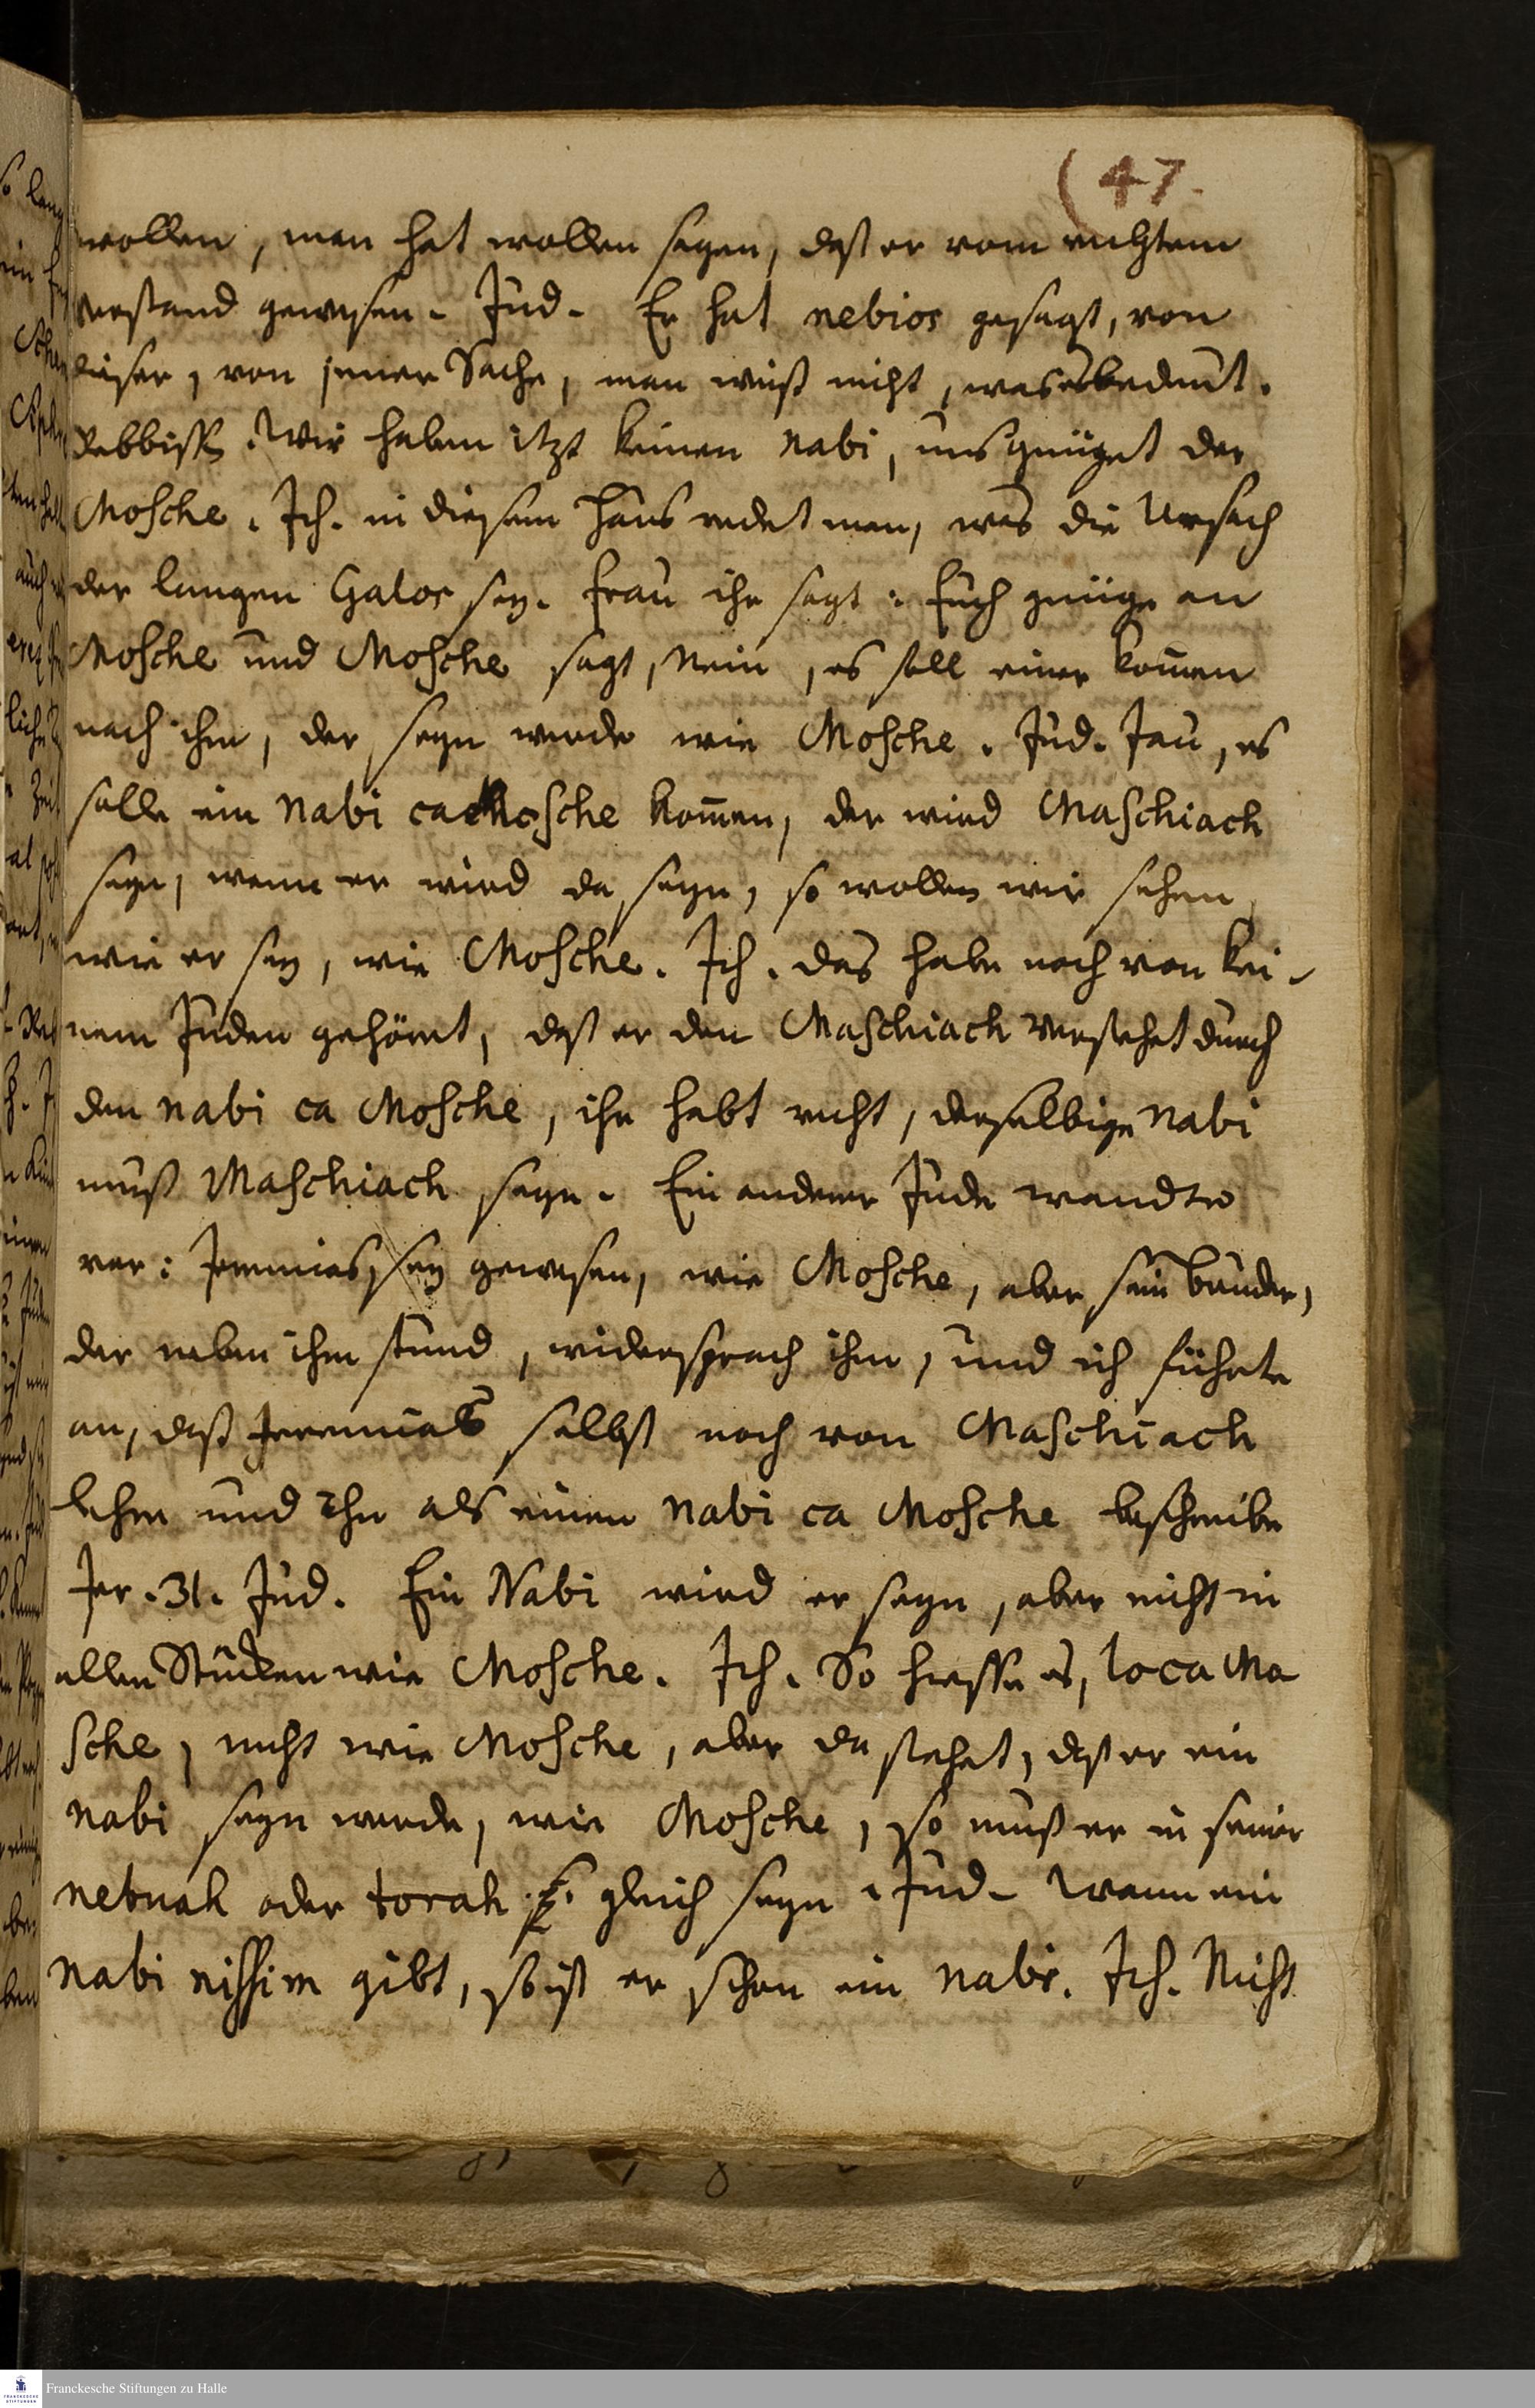 (47.
wollen, man hat wollen sagen, daß er vom rechtem
Verstand gewesen. Jud. Er hat nebios gesagt, von
dieser, von jener Sache, man weiß nicht, was es bedeut.
Rebbiss. Wir haben itzt keinen nabi, uns gnüget der
Mosche. Ich. in diesem Haus redet man, was die Ursach
der langen Galos sey. Frau ihr sagt: Euch gnüge an
Mosche und Mosche sagt, Nein, es soll einer kom̄en
nach ihm, der seyn werde wie Mosche. Jud. Jau, es
solle ein Nabi ca Mosche kom̄en, der wird Maschiach
seyn, wenn er wird da seyn, so wollen wir sehen,
wie er sey, wie Mosche. Ich. das habe noch von kei-
nem Juden gehöret, daß er den Maschiach verstehet durch
den nabi ca Mosche, ihr habt recht, derselbige nabi
muß Maschiach seyn. Ein anderer Jude wandte
vor: Jeremias sey gewesen, wie Mosche, aber sein Bruder,
der neben ihm stund, widersprach ihm, und ich führte
an, daß Jeremias selbst noch von Maschiach
lehre und Ihn als einen nabi ca Mosche beschreibe
Jer. 31. Jud. Ein Nabi wird er seyn, aber nicht in
allen Stücken wie Mosche. Ich. So hiesse es, lo ca Mo
sche, nicht wie Mosche, aber da stehet, daß er ein
nabi seyn werde, wie Mosche, so muß er in seiner
nebuah oder torah gleich seyn. Jud. Wann ein
nabi nissim gibt, so ist er schon ein nabi. Ich. Nicht
Franckesche Stiftungen zu Halle